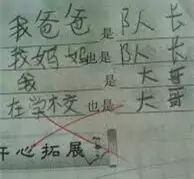 我爸爸是队长
我妈妈也是队长
我是大哥
在学校也是大哥
开心拓展